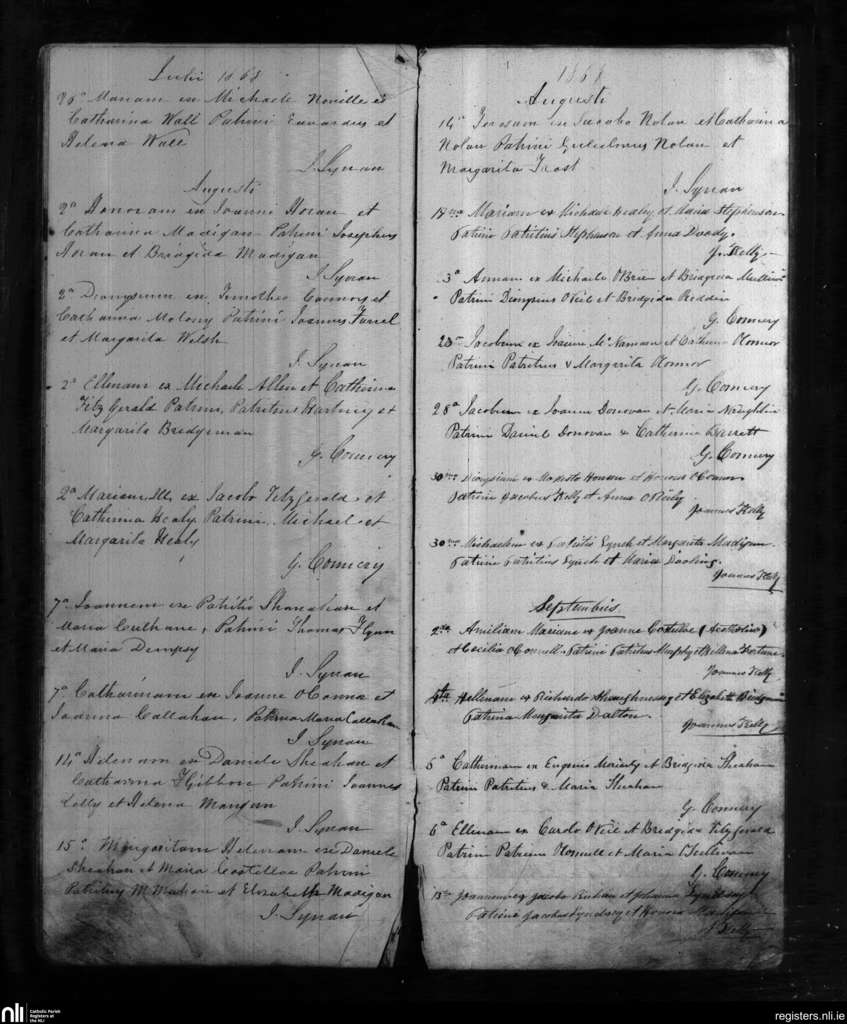 Julii 1868
26° Mariam ex Michaele Neville et
Catharina Wall Patrini Edvardus et
Helena Wall
J. Synan
Augusti
2a Honoram ex Joanne Horan et
Catharina Madigan Patrini Josephus
Horan et Bridgida Madigan
J Synan
2a Dionysium ex Timotheo Connors et
Catharina Molony Patrini Joannes Farrel
et Margarita Welsh
J. Synan
2a Ellenam ex Michaele Allen et Catherina
Fitz Gerald Patrini, Patritius Hartney et
Margarita Bridgeman
G. Connery
2a Mariam ex Jacobo Fitzgerald et
Catherina Healy Patrini, Michael et
Margarita Healy
G. Connery
7a Joannem ex Patritio Shanahan et
Maria Culhane, Patrini Thomas Flynn
et Maria Dempsy
J. Synan
7a Catharinam ex Joanne O Connor et
Joanna Callahan, Patrina Maria Callahan
J Synan
14a Helenam ex Daniele Sheahan et
Catharina Fitzgibbon Patrini Joannes
Lilly et Helena Mangan
J. Synan
15a Margaritam Helenam ex Daniele
Sheahan et Maria Costelloe Patrini
Patritius McMahon et Elizabeth Madigan
J. Synan
1868
Augusti
14a Teresam ex Jacobo Nolan et Catharina
Nolan Patrini Gulielmus Nolan et
Margarita Frost
J. Synan
18 Mariam ex Michaele Healy et Maria Stephenson
Patrini Patritius Stephenson et Anna Doody.
J. Kelly
3a Annam ex Michaele O'Brien et Bridgida
Patrini Dionysius O'Neil et Bridgida Reddin
G. Connery
23 Jacobum ex Joanne McNamara et Catherina O'Connor
Patrini Patritius & Margarita O'Connor
G. Connery
28a Jacobum ex Joanne Donovan et Maria Naughtin
Patrini Daniel Donovan & Catherina Barrett
G. Connery
30 Dionysium ex Honan et Honora O'Connor
Patrini Jacobus Kelly et Anna O'Reilly
Joannes Kelly
30 Michaelem ex Patritio Lynch et Margarita Madigan
Patrini Patritius Lynch et Maria Dooling.
Joannes Kelly
Septembris
2da Mariam ex Joanne Costelloe
et Cecilia O'Connell. Patrini Patritius Murphy et Fortune
Joannes Kelly
4ta Hellenam ex Richardo Shaughnessy et Elizabeth Bridgeman
Patrina Margarita Dalton.
Joannes Kelly
5a Catherinam ex Eugenio Moriarty et Bridgida Sheahan
Patrini Patritius & Maria Sheahan
G. Connery
6a Ellenam ex Carolo O'Neil et Bridgida Fitzgerald
Patrini Patritius et Maria O'Sullivan
G. Connery
Joannem ex Jacobo et Johanna Lyndsay
Patrini Jacobus Lyndsay et Honora
J. Kelly
nli
Catholic Parish
Registers at
the NLI
registers.nli.ie